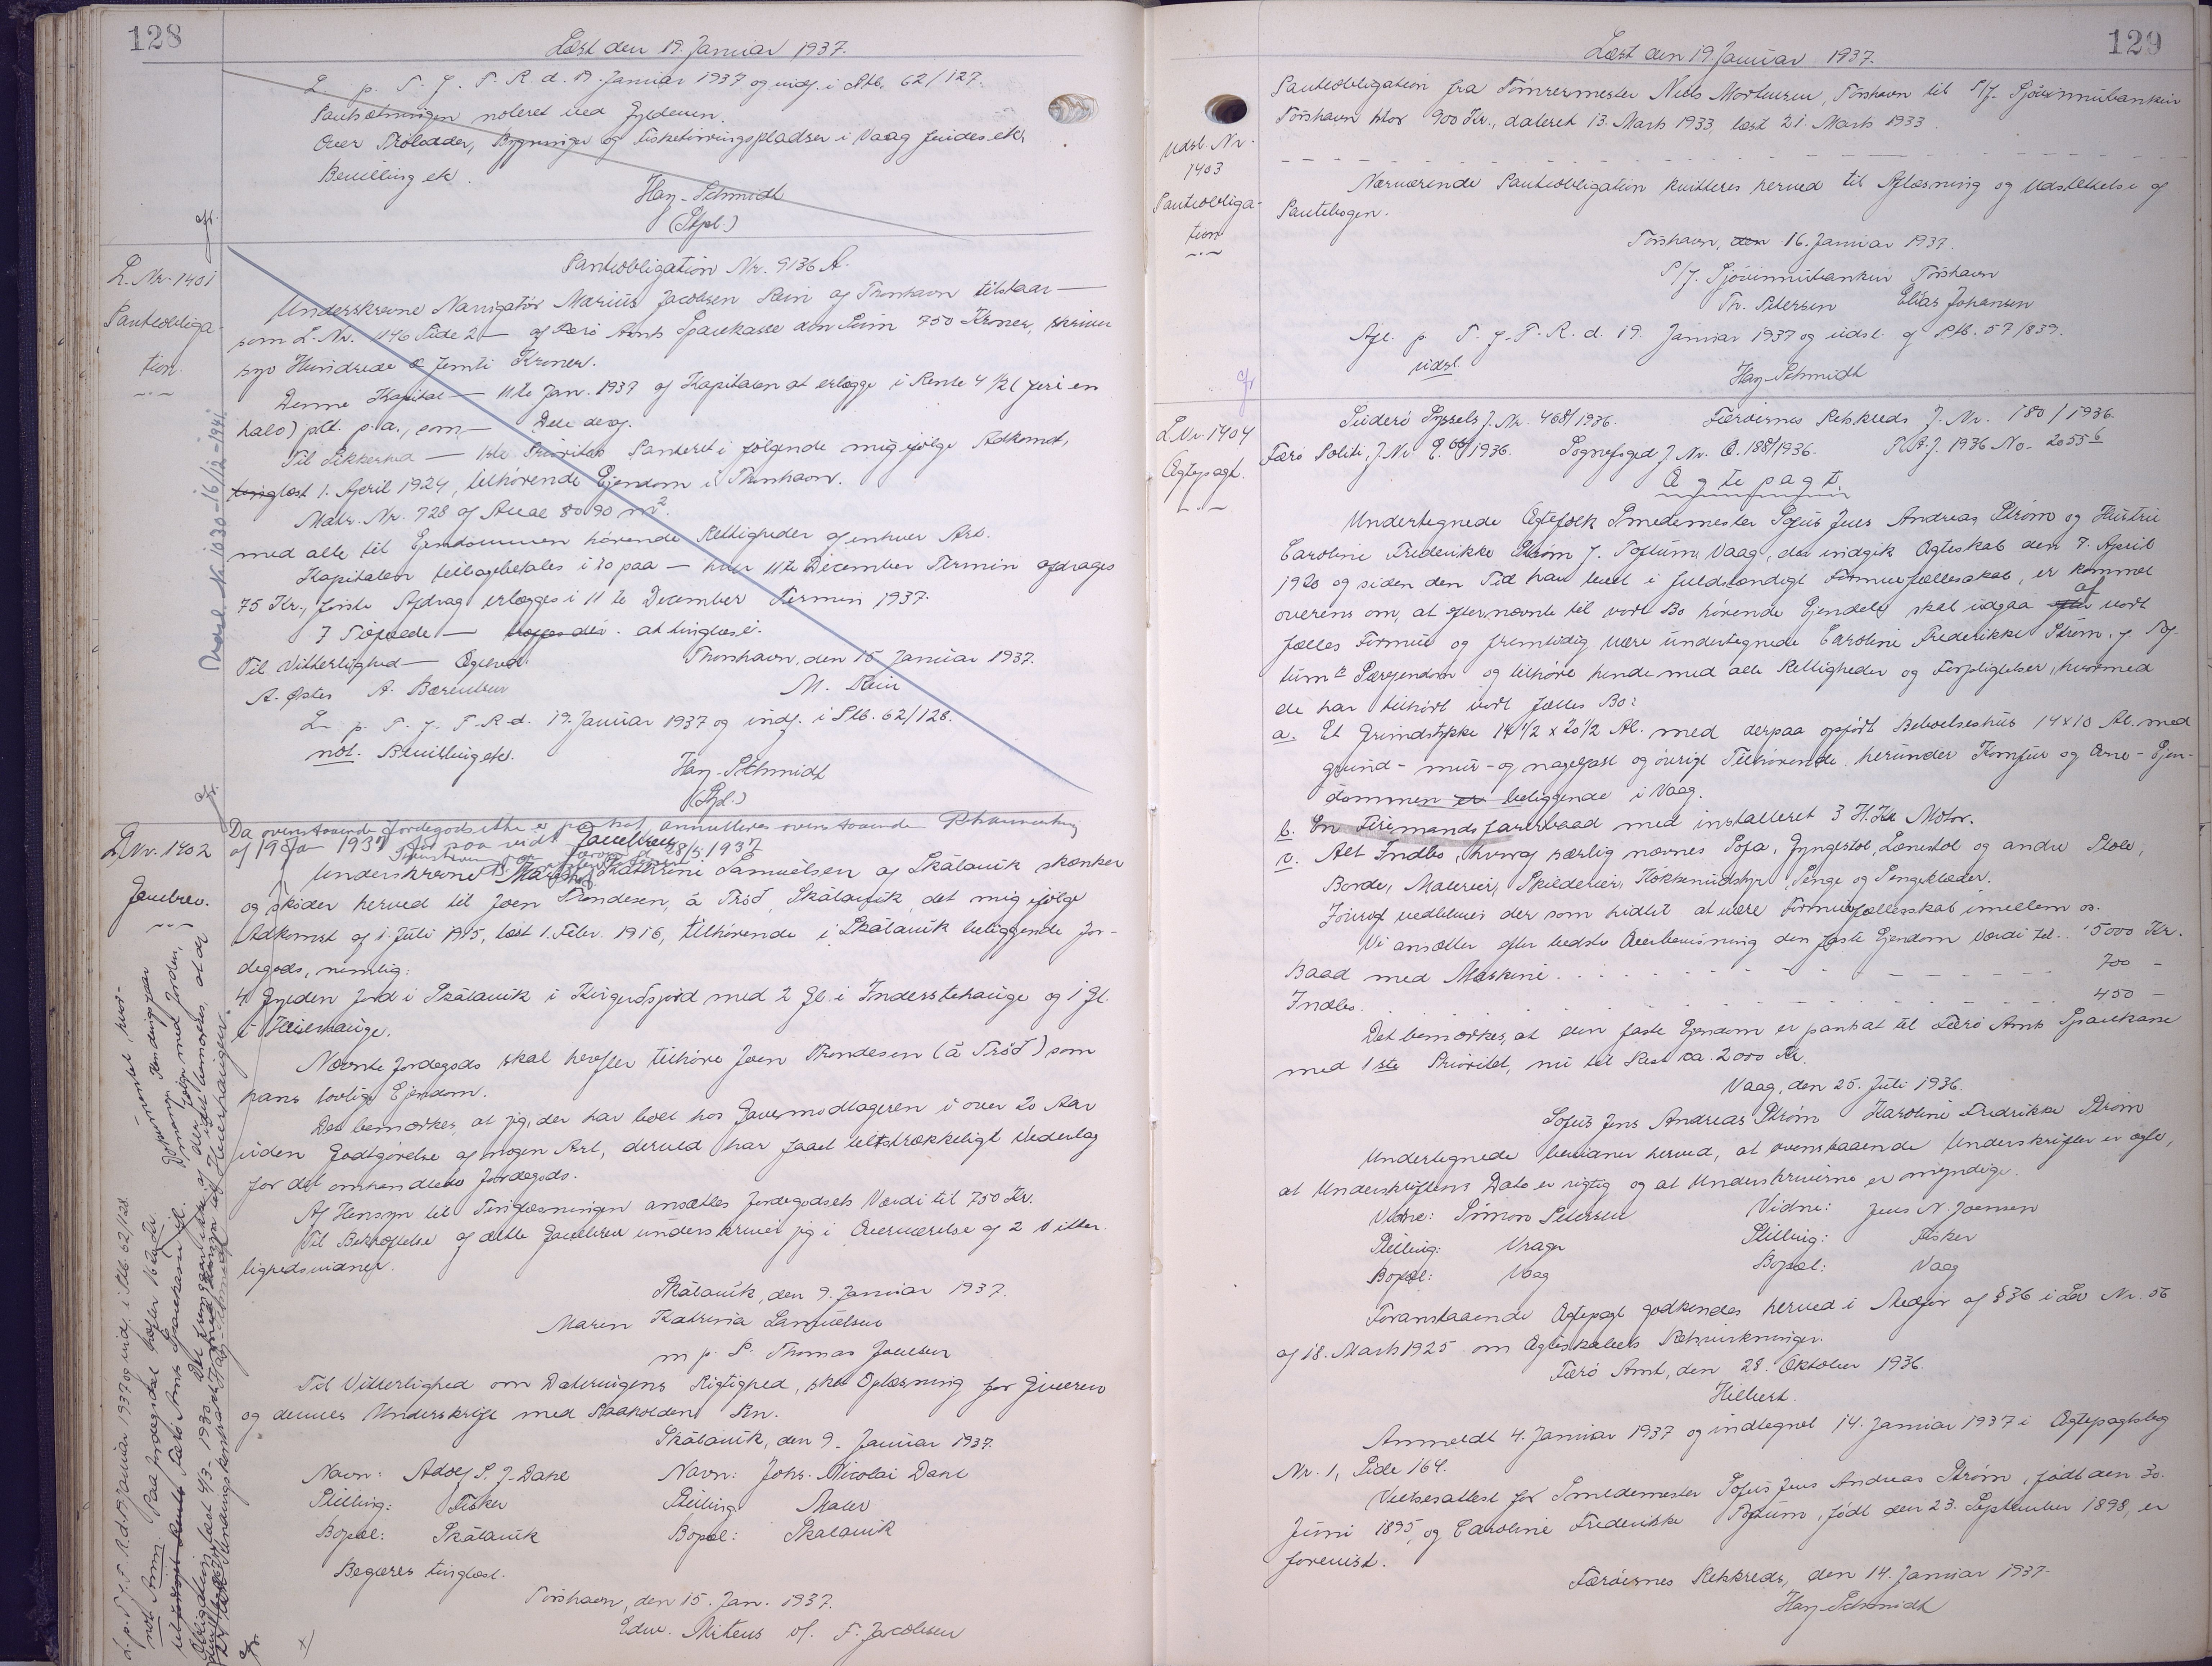 128
Læst den 19. Januar 1937.
L. p. T. f. F. R. d. 19. Januar 1937 og indf. i Ptb. 62/127.
Pantsætningen noteret ved Gyldenen.
Over Trölodder, Bygninger og Fisketörringspladser i Vaag findes etc.
Bevilling etc.
Hay-Schmidt
(Stpl.)
L. Nr. 1401
Panteobliga-
tion
Udsl. Nr. 1030 - 16/12-1941.
Panteobligation Nr. 9136 A.
Underskrevne Navigatör Marius Jacobsen Rein af Thorshavn tilstaar —
som L. Nr. 1146 Side 2 — af Færö Amts Sparekasse den Sum 750 Kroner, skriver
syv Hundrede & femti Kroner.
Denne Kapital — 11te Jan. 1937 af Kapitalen at erlægge i Rente 4 1/2 (fire en
halv) pCt. p.a., som — Dele deraf.
Til Sikkerhed — 1ste Prioritets Panteret i følgende mig ifølge Adkomst,
tinglæst 1. April 1924, tilhørende Ejendom i Thorshavn.
Matr. Nr. 728 af Areal 8090 m2.
med alle til Ejendommen hörende Rettigheder af enhver Art.
Kapitalen tilbagebetales i 10 paa — hver 11te December Termin afdrages
75 Kr., første Afdrag erlægges i 11te December Termin 1937.
I Tilfælde — at tinglæse.
Til Vitterlighed — Ægthed. Thorshavn, den 15 Januar 1937.
A. Öster A. Bærentsen M. Rein
L. p. T. f. F. R. d. 19. Januar 1937 og indf. i Ptb. 62/128.
not. Bevilling etc.
Hay-Schmidt
(Stpl.)
L. Nr. 1402
Gavebrev.
Da ovenstaaende Jordegods ikke er annulleres ovenstaaende
af 19 Jan 1937
28/5 1937
Gavebrev
Underskrevne Maren Katherine Samuelsen af Skálavík skænker
og skøder herved til Joen Thomdesen, á Tröð, Skálavík, det mig ifølge
Adkomst af 1. Juli 1915, læst 1. Febr. 1916, tilhørende i Skálavík beliggende Jor-
degods, nemlig:
4 Gylden Jord i Skálavík i med 2 Gl. i Inderstehauge og 1 Gl.
i
Nævnte Jordegods skal herefter tilhøre Joen Thomdesen (á Tröð) som
hans lovlige Ejendom.
Det bemærkes, at jeg, der har boet hos Gavemodtageren i over 20 Aar
uden Godtgørelse af nogen Art, derved har faaet tilstrækkeligt Vederlag
for det omhandlede Jordegods.
Af Hensyn til Tinglæsningen ansættes Jordegodsets Værdi til 750 Kr.
Til Bekræftelse af dette Gavebrev underskriver jeg i Overværelse af 2 Vitter-
lighedsvidner.
Skálavík, den 9. Januar 1937.
Maren Katrina Samuelsen
m. p. S. Thomas Joensen
Til Vitterlighed om Dateringens Rigtighed, sket Oplæsning for Giveren
og dennes Underskrift med Paaholden Pen.
Skálavík, den 9. Januar 1937.
Navn: Adolf S. J. Dahl Navn: Johs. Nicolai Dahl
Stilling: Fisker Stilling: Maler
Bopæl: Skálavík Bopæl: Skálavík
Begæres tinglæst.
Tórshavn, den 15. Jan. 1937.
Edw. Mitens v/. F. Jacobsen
L. p. T. f. F. R. d. 19 Januar 1937 og indf. i Ptb 62/128.
not. Anm. Paa Jordegodset hæfter
Færö Amts Sparekasse
Obligation læst 4/3-1930
Hay-Schmidt
129
Læst den 19. Januar 1937.
Panteobligation fra Tömrermester Niels Mortensen, Tórshavn til P/f. Sjóvinnubankin
Tórshavn stor 900 Kr., dateret 13. Marts 1933, læst 21. Marts 1933.
Udsl. Nr.
1403
Panteobliga-
tion
Nærværende Panteobligation kvitteres herved til Aflæsning og Udslettelse af
Pantebogen.
Tórshavn, den 16. Januar 1937.
P/f. Sjóvinnubankin Tórshavn
Th. Petersen Elias Johansen
Afl. p. T. f. F. R. d. 19. Januar 1937 og udsl. af Ptb. 57/839.
udsl. Hay-Schmidt
L. Nr. 1404
Ægtepagt.
Suderö Syssels J. Nr. 468/1936. Færöernes Retskreds J. Nr. 180/1936.
Færö Politi, J. Nr. E. 66/1936. Sognefoged J. Nr. Ø. 188/1936. P.R.J. 1936 No. 20556
Ægtepagt.
Undertegnede Ægtefolk Smedemester Sofus Jens Andreas Ström og Hustru
Caroline Frederikke Ström f. Toftum, Vaag, der indgik Ægteskab den 7. April
1920 og siden den Tid har levet i fuldstændigt Formuefællesskab, er kommet
overens om, at efternævnte til vort Bo hörende Ejendele skal udgaa af vort
fælles Formue og fremtidig være undertegnede Caroline Frederikke Ström, f. Tof-
tum's Særejendom og tilhøre hende med alle Rettigheder og Forpligtelser, hvormed
de har tilhørt vort fælles Bo:
a. Et Grundstykke 14 1/2 x 20 1/2 Al. med derpaa opført Beboelseshus 14 x 10 Al. med
grund- mur- og nagelfast og övrigt Tilhörende, herunder Komfur og Ovne - Ejen-
dommen er beliggende i Vaag.
b. En Firemandsfarerbaad med installeret 3 H.K. Motor.
c. Alt Indbo, hvoraf særlig nævnes Sofa, Gyngestol, Lænestol og andre Stole,
Borde, Malerier, Skilderier, Kökkenudstyr, Senge og Sengeklæder.
Iövrigt vedbliver der som hidtil at være Formuefællesskab imellem os.
Vi ansætter efter bedste Overbevisning den faste Ejendom Værdi til .. 5000 Kr.
Baad med Maskine . . . . 700 -
Indbo. . . . 450 -
Det bemærkes, at den faste Ejendom er pantsat til Færö Amts Sparekasse
med 1ste Prioritet, nu til Rest ca. 2000 Kr.
Vaag, den 25. Juli 1936.
Sofus Jens Andreas Ström Karoline Fredrikke Ström
Undertegnede bevidner herved, at ovenstaaende Underskrifter er ægte,
at Underskriftens Dato er rigtig og at Underskriverne er myndige.
Vidne: Simon Petersen Vidne: Jens N. Joensen
Stilling: Vrager Stilling: Fisker
Bopæl: Vaag Bopæl: Vaag
Foranstaaende Ægtepagt godkendes herved i Medfør af § 36 i Lov Nr. 56
af 18. Marts 1925 om Ægteskabets Retsvirkninger.
Færö Amt, den 28. Oktober 1936.
Hilbert.
Anmeldt 4. Januar 1937 og indtegnet 14. Januar 1937 i Ægtepagtsbog
Nr. 1, Side 164.
Vielsesattest for Smedemester Sofus Jens Andreas Ström, født den 30.
Juni 1895, og Caroline Frederikke Toftum, født den 23. September 1898, er
forevist.
Færöernes Retskreds, den 14. Januar 1937.
Hay-Schmidt